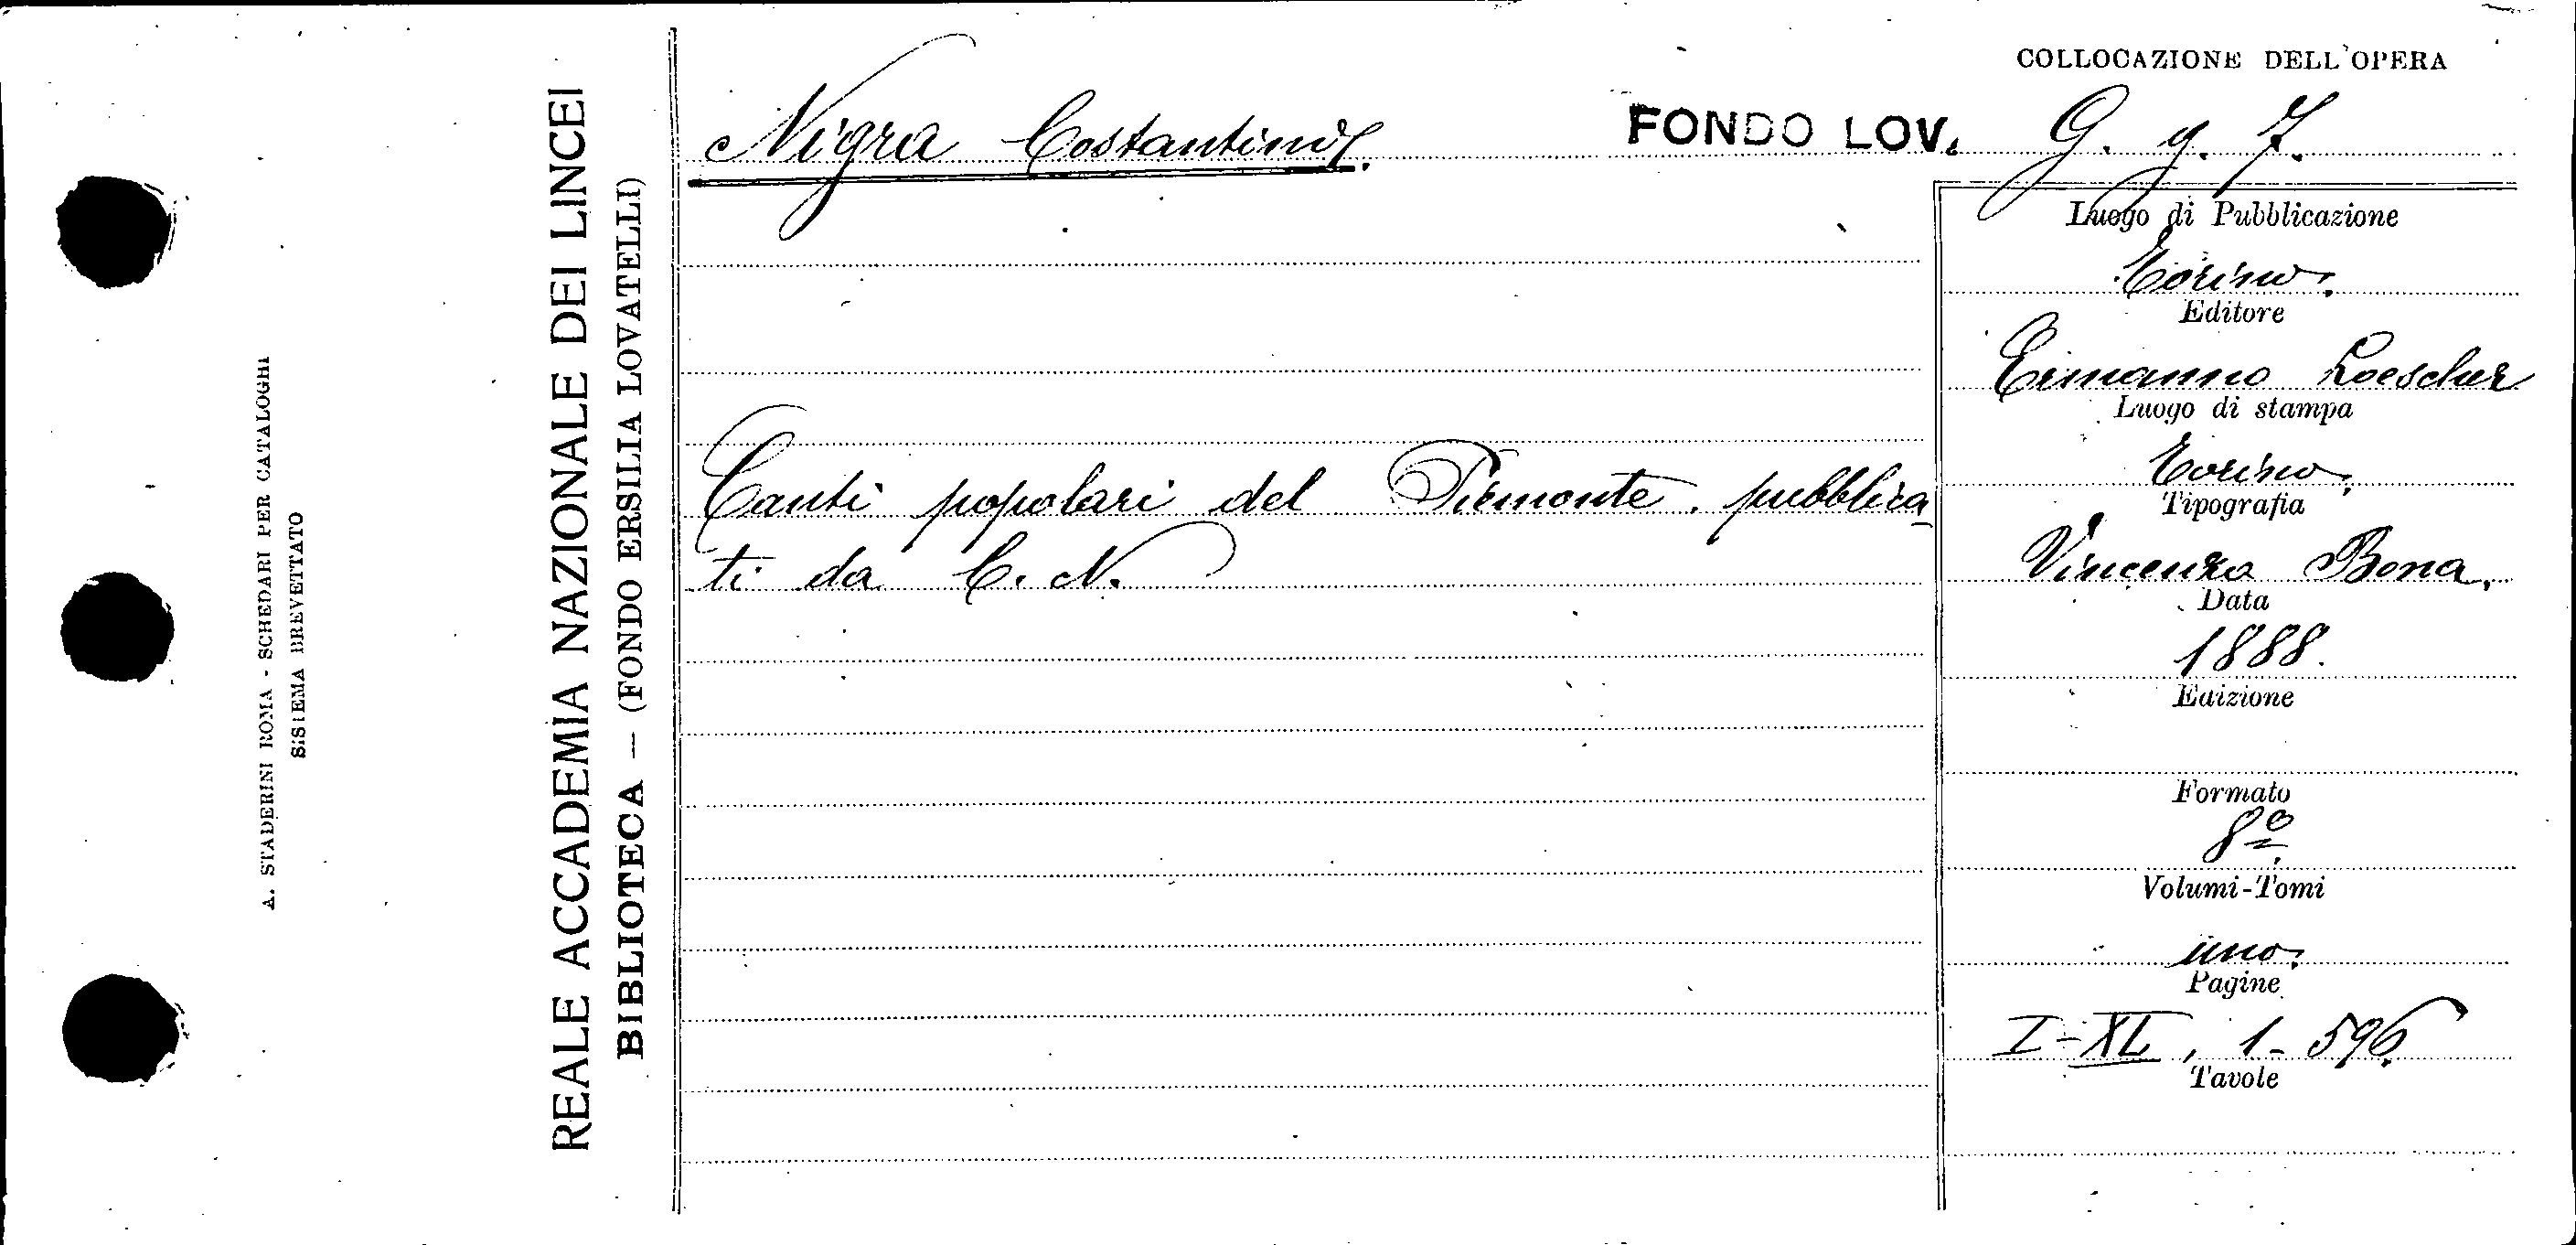 A. STADERINI ROMA - SCHEDARI PER CATALOGHI
SISTEMA BREVETTATO
REALE ACCADEMIA NAZIONALE DEI LINCEI
BIBLIOTECA — (FONDO ERSILIA LOVATELLI)
COLLOCAZIONE DELL'OPERA
Nigra Costantino.
FONDO LOV. G. g. 7.
Canti popolari del Piemonte. pubblica-
ti da C. N.
Luogo di Pubblicazione
Torino.
Editore
Ermanno Loescher
Luogo di stampa
Torino.
Tipografia
Vincenzo Bona.
Data
1888.
Edizione
Formato
8º
Volumi-Tomi
uno.
Pagine
I-XL, 1-596
Tavole